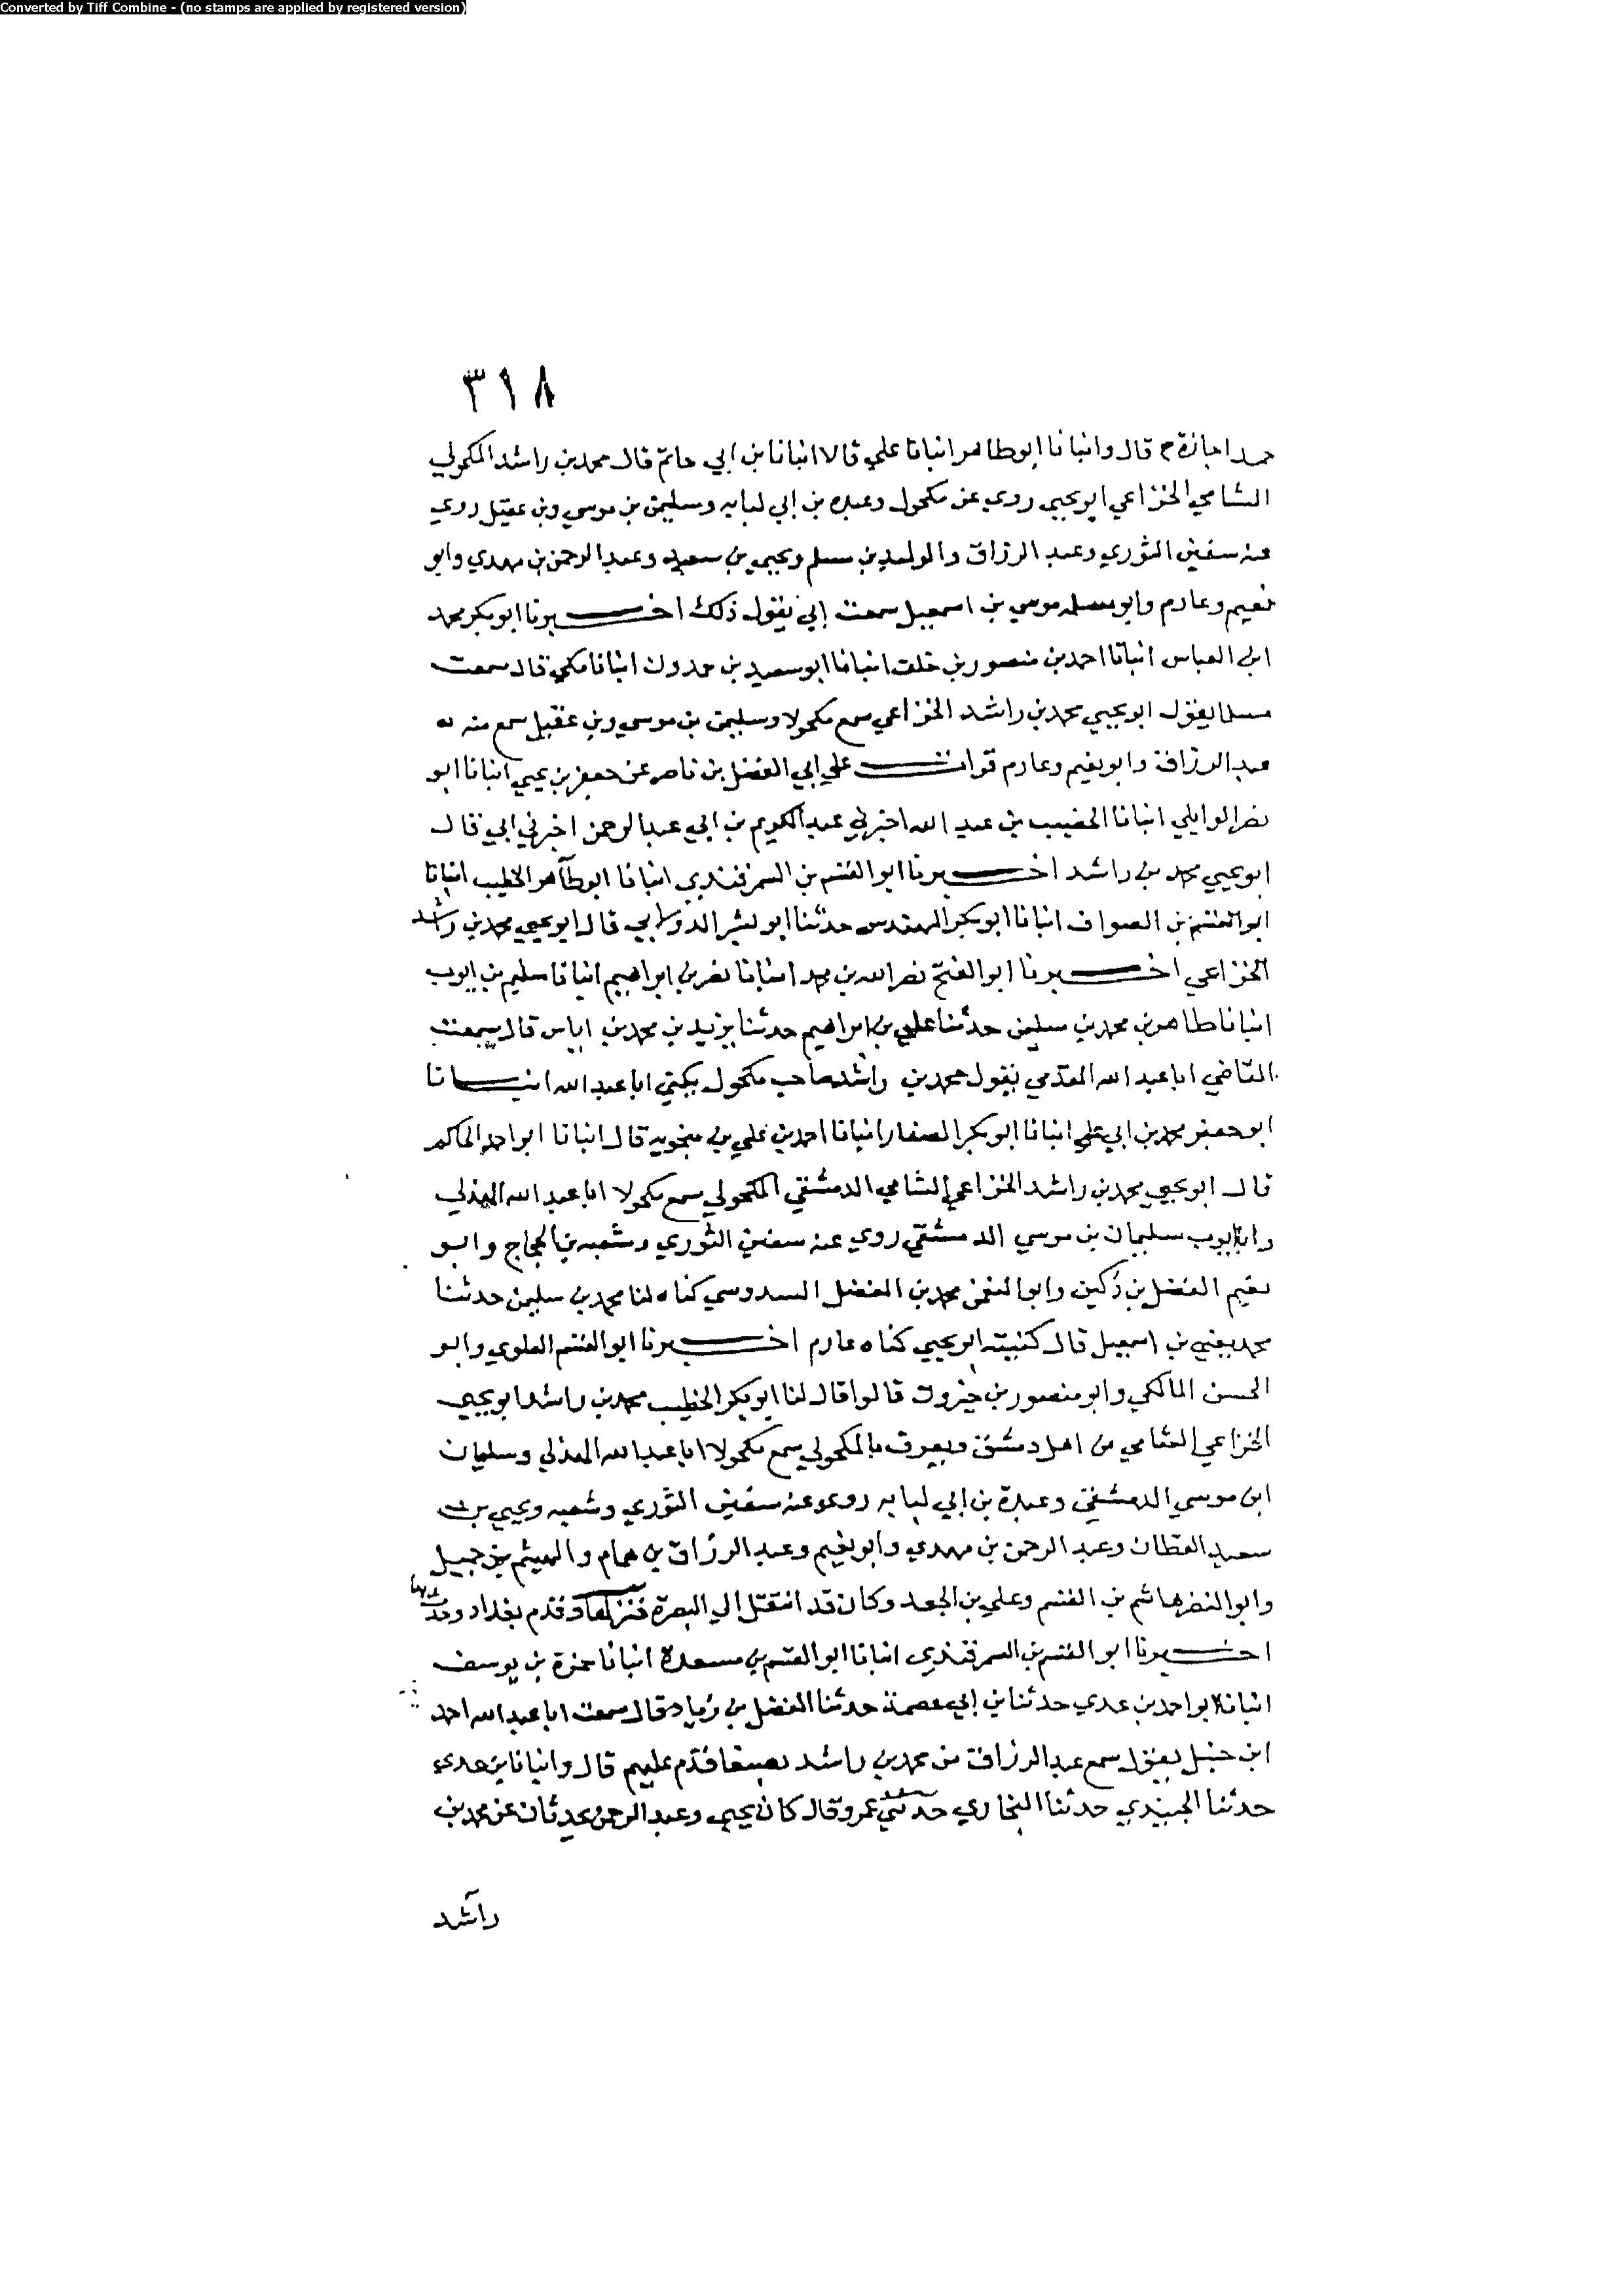 Converted by Tiff Combine - (no stamps are applied by registered version)
٣١٨
حمد اجازة ح قال وانبانا ابوطاهر انبانا علي قالا انبانا بن ابي حاتم قال محمد بن راشد المكحولي
الشامي الخزاعي ابو يحيي روي عن مكحول وعبده بن ابي لبابه وسليمن بن موسي وبن عقيل روي
عنه سفين الثوري وعبد الرزاق والوليد بن مسلم ويحيي بن سعيد وعبد الرحمن بن مهدي وابو
نعيم وعارم وابو سلمه موسي بن اسمعيل سمعت ابي يقول ذلك اخبرنا ابو بكر محمد
ابن العباس انبانا احمد بن منصور بن خلف انبانا ابو سعيد بن حمدون انبانا مكي قال سمعت
مسلما يقول ابو يحيي محمد بن راشد الخزاعي سمع مكحولا وسليمن بن موسي وبن عقيل سمع منه
عبد الرزاق وابو نعيم وعارم قرات علي ابي الفضل بن ناصر عن جعفر بن يحيي انبانا ابو
نصر الوايلي انبانا الخصيب بن عبد الله اخبرني عبد الكريم بن ابي عبد الرحمن اخبرني ابي قال
ابو يحيي محمد بن راشد اخبرنا ابو القسم بن السمرقندي انبانا ابو طاهر الخطيب انبانا
ابو القسم بن الصواف انبانا ابو بكر المهندس حدثنا ابو بشر الدولابي قال ابو يحيي محمد بن راشد
الخزاعي اخبرنا ابو الفتح نصر الله بن محمد انبانا نصر بن ابراهيم انبانا سليم بن ايوب
انبانا طاهر بن محمد بن سليمن حدثنا علي بن ابراهيم حدثنا يزيد بن محمد بن اياس قال سمعت
القاضي ابا عبد الله المقدمي يقول محمد بن راشد صاحب مكحول يكني ابا عبد الله انبانا
ابو جعفر محمد بن ابي علي انبانا ابو بكر الصفار انبانا احمد بن علي بن منجويه قال انبانا ابو احمد الحاكم
قال ابو يحيي محمد بن راشد الخزاعي الشامي الدمشقي المكحولي سمع مكحولا ابا عبد الله الهذلي
وابا ايوب سليمان بن موسي الدمشقي روي عنه سفين الثوري وشعبه بن الحجاج وابو
نعيم الفضل بن دكين وابو النعمن محمد بن الفضل السدوسي كناه لنا محمد بن سليمن حدثنا
محمد يعني بن اسمعيل قال كنيته ابو يحيي كناه عارم اخبرنا ابو القسم العلوي وابو
الحسن المالكي وابو منصور بن خيرون قالوا قال لنا ابو بكر الخطيب محمد بن راشد ابو يحيي
الخزاعي الشامي من اهل دمشق ويعرف بالمكحولي سمع مكحولا ابا عبد الله الهذلي وسليمان
ابن موسي الدمشقي وعبدة بن ابي لبابه روي عنه سفين الثوري وشعبه ويحيي بن
سعيد القطان وعبد الرحمن بن مهدي وابو نعيم وعبد الرزاق بن همام والهيثم بن جميل
وابو النضر هاشم بن القسم وعلي بن الجعد وكان قد انتقل الي البصرة فنزلها وقدم بغداد وحدث بها
اخبرنا ابو القسم بن السمرقندي انبانا ابو القسم بن مسعدة انبانا حمزة بن يوسف
انبانا ابو احمد بن عدي حدثنا بن ابي عصمة حدثنا الفضل بن زياد قال سمعت ابا عبد الله احمد
ابن حنبل يقول سمع عبد الرزاق من محمد بن راشد بصنعا قدم عليهم قال وانبانا بن عدي
حدثنا الجنيدي حدثنا البخاري حدثني عمرو قال كان يحيي وعبد الرحمن يحدثان عن محمد بن
راشد